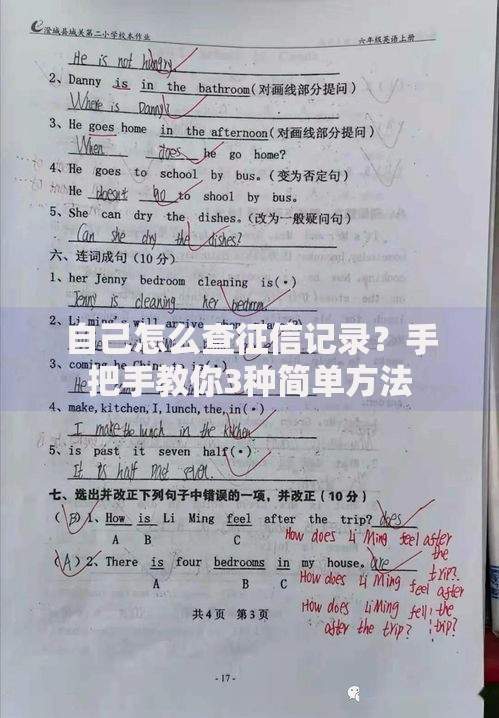 澄城县城关第二小学校本作业 六年级英语上册
He is not hungry.
2、Danny is in the bathroom(对画线部分提问)
Where is Danny?
3、He goes home in the afternoon(对画线部分提问)
When does he go home?
4、He goes to school by bus。(变为否定句)
He doesn't go to shool by bus.
5、She can dry the dishes。(改为一般疑问句)
Can she dry the dishes?
六、连词成句(10分)
1、her Jenny bedroom cleaning is(•)
Jenny is cleaning her bedroom.
2、Li ming's will arrive
自己怎么查征信记录？手
把手教你3种简单方法
3、coming he
4、make,kitchen,I,lunch,the,in(•)
I make the lunch in the kitchen
5、is past it seven half(•)
It is half past seven.
七、选出并改正下列句子中错误的一项，并改正(10分)
(B)1、How is Li Ming feel after the trip? does
A B C
How does Li Ming feel after the trip?
(A)2、There is four bedrooms in my house. are
A B C
How does Li Ming feel after the trip?
How does Li Ming fell after the trip?
共4页 第3页
-17-